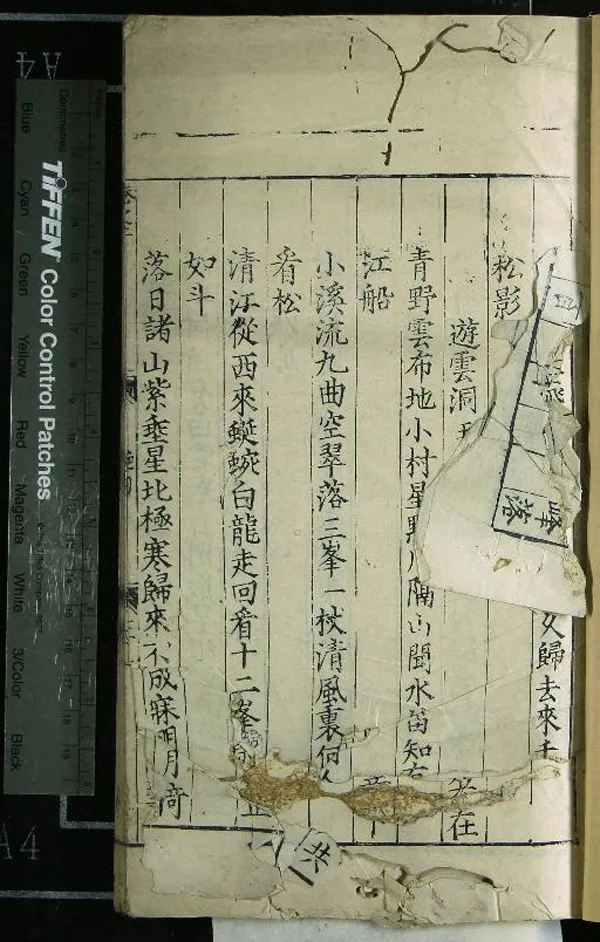 歸去來千
松影
遊雲洞
青野雲布地小村星點川隔山聞水笛知有
江船
小溪流九曲空翠落三峯一杖清風裏何人
看松
清江從西來蜒蜿白龍走回看十二峯
如斗
落日諸山紫垂星北極寒歸來不成寐明月
峰落
A4
Centimetres
TIFFEN Color Control Patches
Blue
Cyan
Green
Yellow
Red
Magenta
White
3/Color
Black
A4